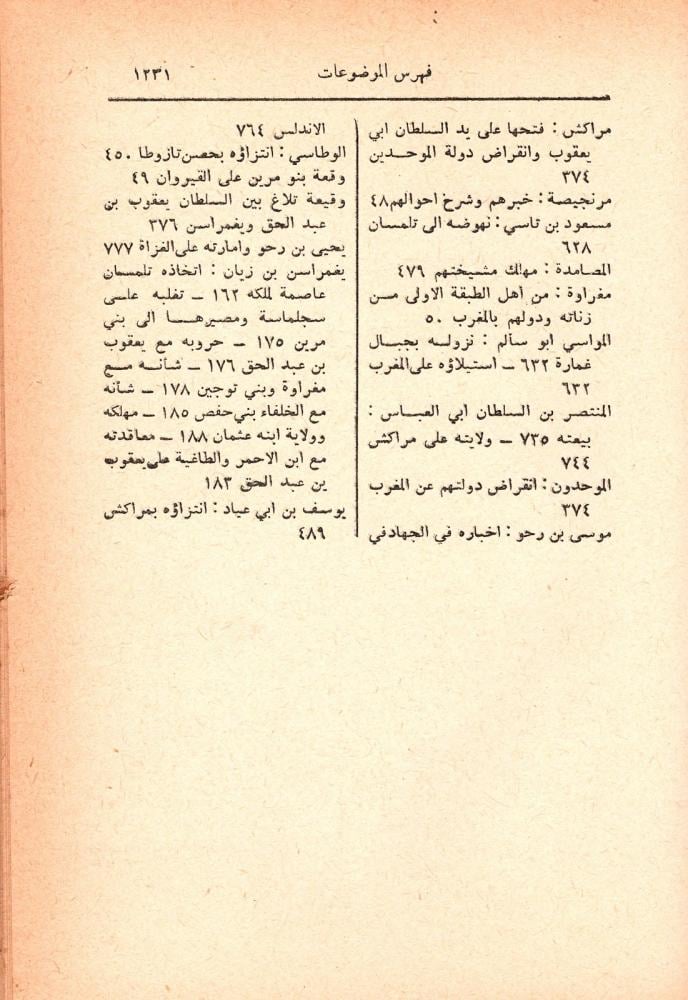 فهرس الموضوعات ١٢٣١
مراكش : فتحها على يد السلطان ابي
يعقوب وانقراض دولة الموحدين
٣٧٤
مرنجيصة : خبرهم وشرخ احوالهم ٤٨
مسعود بن تاسي : نهوضه الى تلمسان
٦٢٨
المصامدة : مهلك مشيختهم ٤٧٩
مغراوة : من أهل الطبقة الاولى من
زناته ودولهم بالمغرب ٥٠
المواسي ابو سألم : نزوله بجبال
غمارة ٦٣٢ – استيلاؤه على المغرب
٦٣٢
المنتصر بن السلطان ابي العباس :
بيعته ٧٣٥ – ولايته على مراكش
٧٤٤
الموحدون : انقراض دولتهم عن المغرب
٣٧٤
موسى بن رحو : اخباره في الجهاد في
الاندلس ٧٦٤
الوطاسي : انتزاؤه بحصن تازوطا ٤٥٠
وقعة بنو مرين على القيروان ٤٩
وقيعة تلاغ بين السلطان يعقوب بن
عبد الحق ويغمراسن ٣٧٦
يحيى بن رحو وامارته على الغزاة ٧٧٧
يغمراسن بن زيان : اتخاذه تلمسان
عاصمة لملكه ١٦٢ – تغلبه على
سجلماسة ومصيرها الى بني
مرين ١٧٥ – حروبه مع يعقوب
بن عبد الحق ١٧٦ – شأنه مع
مغراوة وبني توجين ١٧٨ – شأنه
مع الخلفاء بني حفص ١٨٥ – مهلكه
وولاية ابنه عثمان ١٨٨ – معاقدته
مع ابن الاحمر والطاغية على يعقوب
بن عبد الحق ١٨٣
يوسف بن ابي عياد : انتزاؤه بمراكش
٤٨٩